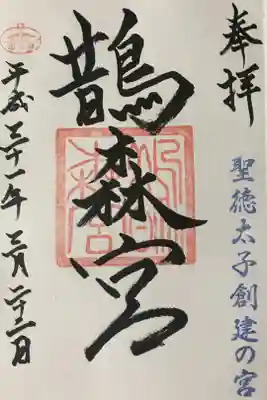 奉拝
聖徳太子創建の宮
鵲森宮
平成三十一年三月二十二日